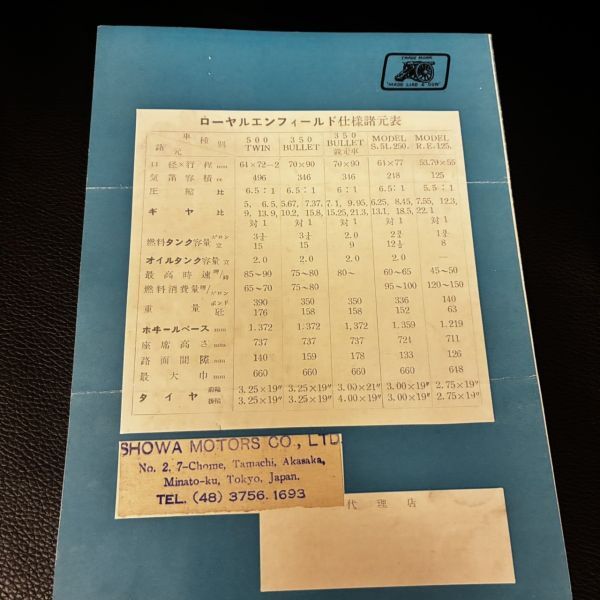 TRADE MARK
"MADE LIKE A GUN"
ローヤルエンフィールド仕様諸元表
車種別 諸元 500 TWIN 350 BULLET 350 BULLET 競走車 MODEL S.5L250. MODEL R.E.125.
口径×行程 mm 64×72−2 70×90 70×90 64×77 53.79×55
気筒容積 cc 496 346 346 218 125
圧縮比 6.5:1 6.5:1 6:1 6.5:1 5.5:1
ギヤ比 5, 6.5, 5.67, 7.37, 7.1, 9.95, 6.25, 8.45, 7.55, 12.3,
9, 13.9, 10.2, 15.8, 15.25, 21.3, 13.1, 18.5, 22.1
対1 対1 対1 対1 対1
燃料タンク容量 ガロン 2.0
立 15 15 9 12½ 8
オイルタンク容量 立 2.0 2.0 2.0 — —
最高時速 哩/時 85~90 75~80 80~ 60~65 45~50
燃料消費量 哩/ガロン 65~70 75~80 95~100 120~150
重量 ポンド 390 350 350 336 140
瓩 176 158 158 152 63
ホヰールベース mm 1.372 1.372 1,372 1.359 1.219
座席高さ mm 737 737 737 724 711
路面間隙 mm 140 159 178 133 126
最大巾 mm 660 660 660 660 648
タイヤ 前輪 3.25×19" 3.25×19" 3.00×21" 3.00×19" 2.75×19"
後輪 3.25×19" 3.25×19" 4.00×19" 3.00×19" 2.75×19"
SHOWA MOTORS CO., LTD
No. 2, 7-Chome, Tamachi, Akasaka,
Minato-ku, Tokyo, Japan.
TEL. (48) 3756. 1693
代理店